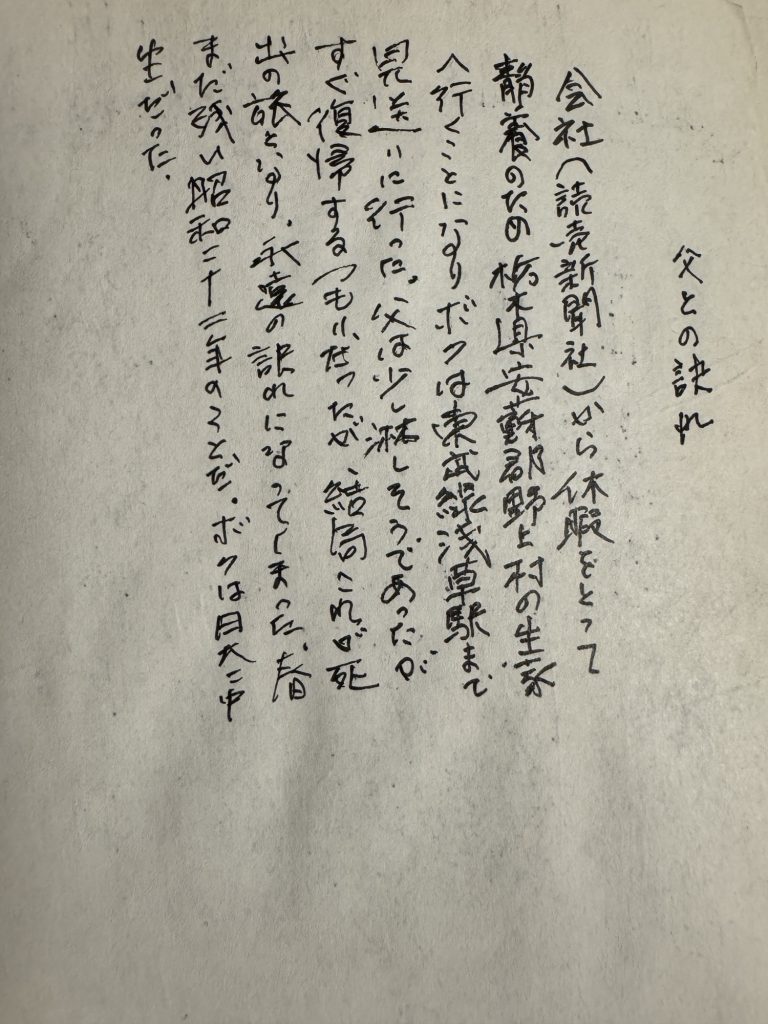 父との訣れ
会社(読売新聞社)から休暇をとって
静養のため栃木県安蘇郡野上村の生家
へ行くことになりボクは東武線浅草駅まで
見送いに行った。父は少し淋しそうであったが
すぐ復帰するつもりだったが結局これが死
出の旅となり、永遠の訣れになってしまった、春
まだ残い昭和二十二年のことだ。ボクは日大二中
生だった.